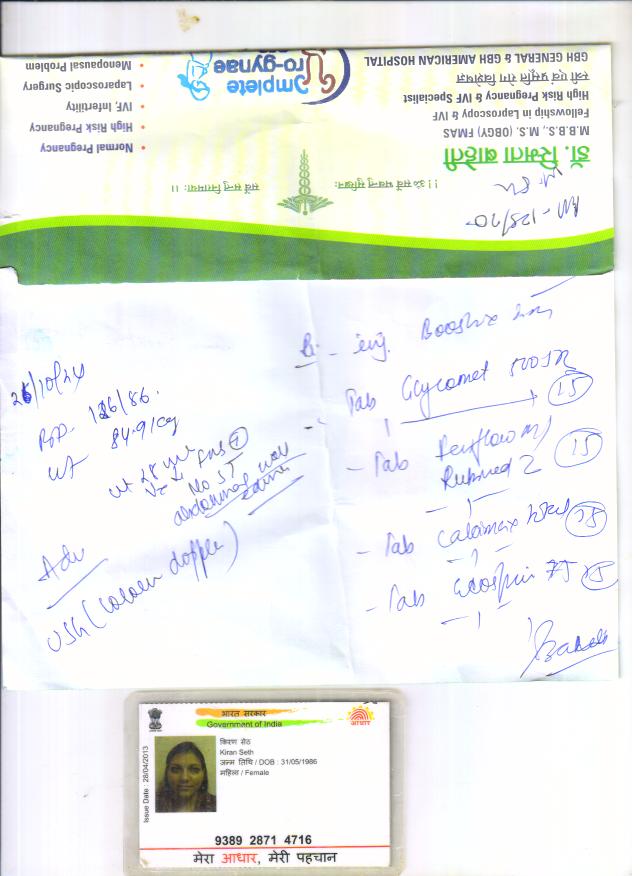 डॉ. स्मिता बाहेती
M.B.B.S., M.S. (OBGY) FMAS
Fellowship in Laproscopy & IVF
High Risk Pregnancy & IVF Specialist
स्त्री एवं प्रसूति रोग विशेषज्ञ
GBH GENERAL & GBH AMERICAN HOSPITAL
Complete
Uro-gynae
• Normal Pregnancy
• High Risk Pregnancy
• IVF, Infertility
• Laparoscopic Surgery
• Menopausal Problem
!!ॐ सर्वे भवन्तु सुखिनः
सर्वे सन्तु निरामयाः ।।
128/70
/10/24
126/86.
wt 84.9 kg
No
abdominal wall
edema
Adv
USG (colour doppler)
inj. Boostrix
- Tab Glycomet 500 SR 15
- Tab
2 15
- Tab Calamax
- Tab Ecosprin 75
भारत सरकार
Government of India
Issue Date : 28/04/2013
किरण सेठ
Kiran Seth
जन्म तिथि / DOB : 31/05/1986
महिला / Female
आधार
9389 2871 4716
मेरा आधार, मेरी पहचान